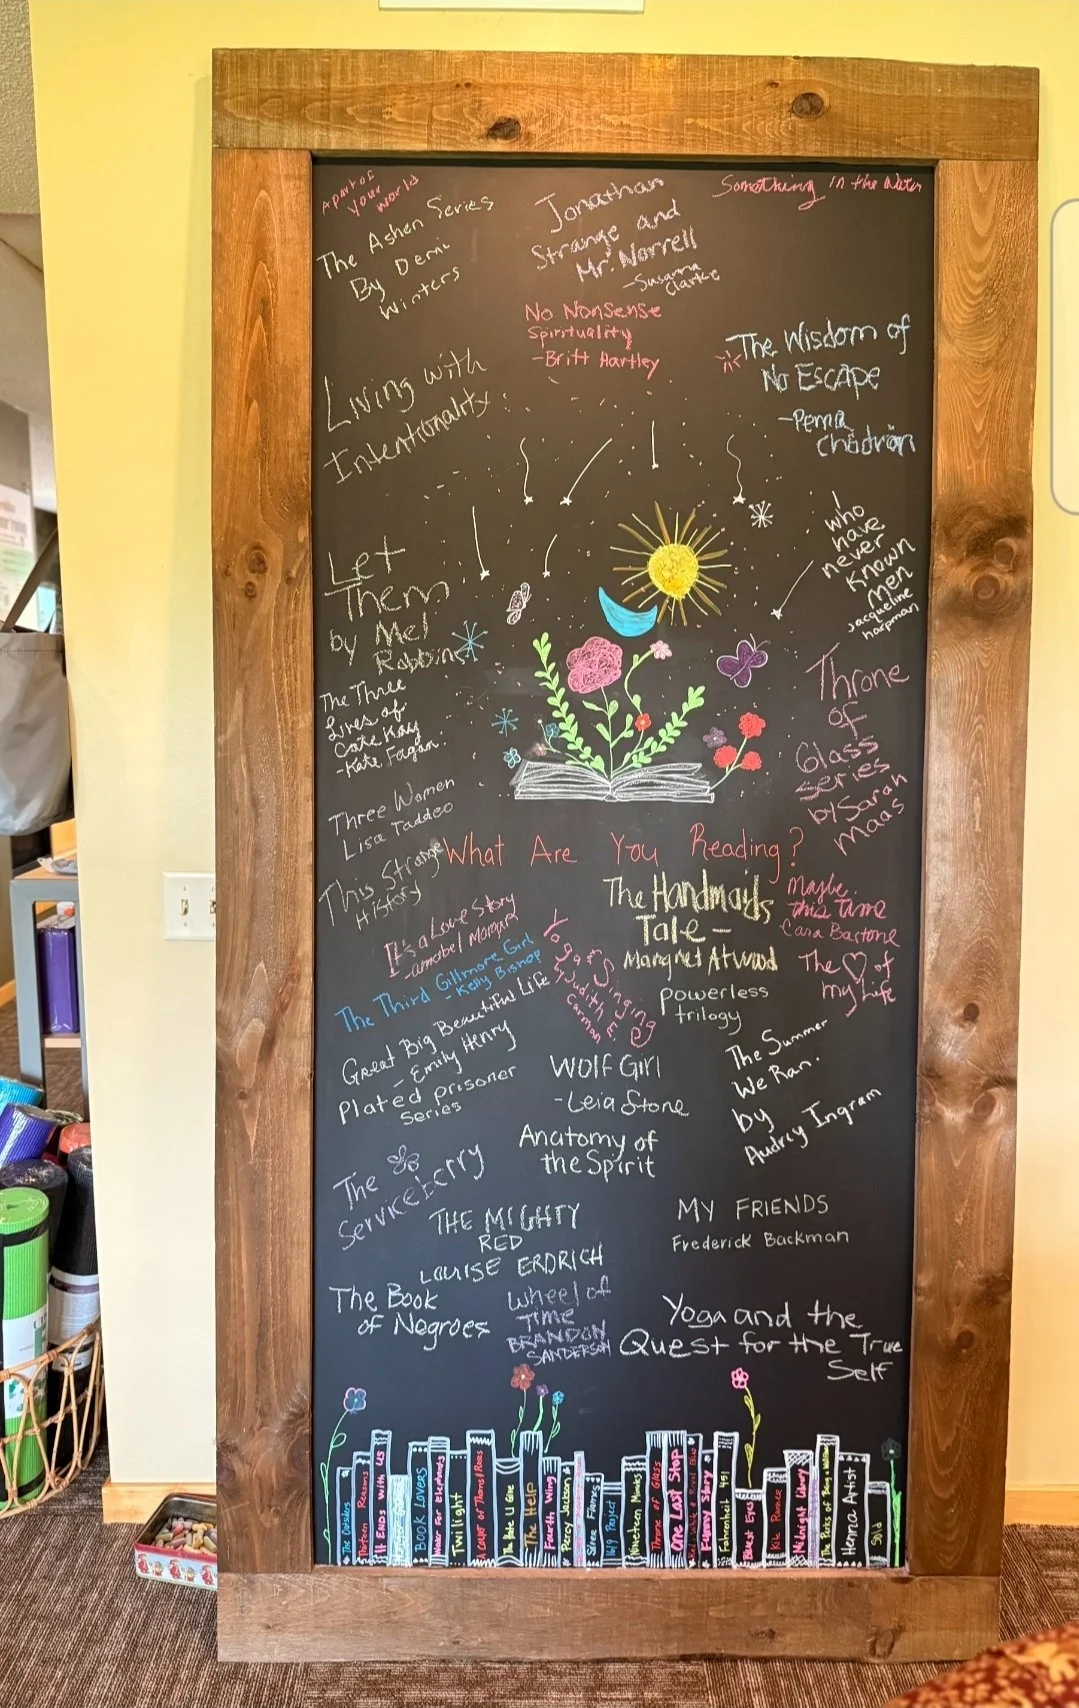 Apart of
your
world
The Ashen Series
By Demi
Winters
Jonathan
Strange and
Mr. Norrell
-Susanna
Clarke
Something in the Water
No Nonsense
Spirituality
-Britt Hartley
The Wisdom of
No Escape
-Pema
Chödrön
Living with
Intentionality
I who
have
never
known
men
Jacqueline
harpman
Let
Them
by Mel
Robbins
The Three
Lives of
Cate Kay
-Kate Fagan
Throne
of
Glass
series
by Sarah
Maas
Three Women
Lisa Taddeo
This Strange
History
What Are You Reading?
It's a Love Story
-annabel Monaghan
The Third Gillmore Girl
-Kelly Bishop
Great Big Beautiful Life
-Emily Henry
Plated prisoner
series
Yoga of Singing
Judith E.
Carman
The Handmaids
Tale -
Margret Atwood
Maybe
this Time
Cara Bastone
The ♡ of
my Life
powerless
trilogy
Wolf Girl
-Leia Stone
The Summer
We Ran.
by
Audrey Ingram
Anatomy of
the Spirit
The
Serviceberry
THE MIGHTY
RED
LOUISE ERDRICH
MY FRIENDS
Frederick Backman
The Book
of Negroes
Wheel of
Time
BRANDON
SANDERSON
Yoga and the
Quest for the True
Self
The Outsiders
Thirteen Reasons
It Ends With Us
Book Lovers
Water For Elephants
Twilight
Court of Thorns & Roses
The Hate U Give
The Help
Fourth Wing
Percy Jackson
1619 Project
Nineteen Minutes
Throne of Glass
One Last Stop
Red White & Royal Blue
Funny Story
Fahrenheit 451
Bluest Eyes
Kite Runner
Midnight Library
Henna Artist
Sold